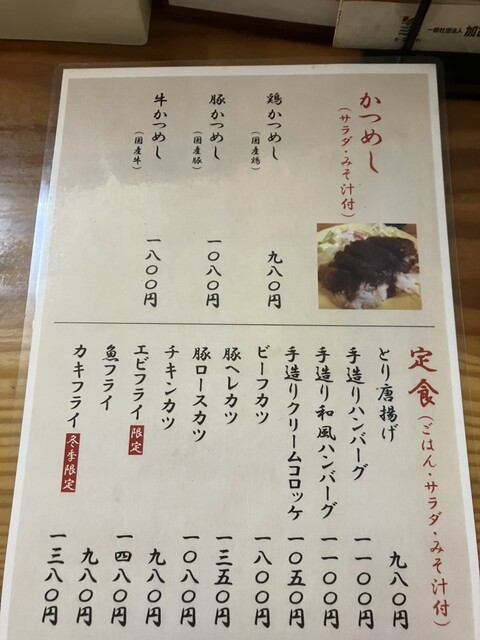 一般社団法人 加
かつめし
(サラダ・みそ汁付)
鶏かつめし(国産鶏) 九八〇円
豚かつめし(国産豚) 一〇八〇円
牛かつめし(国産牛) 一八〇〇円
定食(ごはん・サラダ・みそ汁付)
とり唐揚げ 九八〇円
手造りハンバーグ 一一〇〇円
手造り和風ハンバーグ 一一〇〇円
手造りクリームコロッケ 一〇五〇円
ビーフカツ 一八〇〇円
豚ヘレカツ 一三五〇円
豚ロースカツ 一〇八〇円
チキンカツ 九八〇円
エビフライ 限定 一四八〇円
魚フライ 九八〇円
カキフライ 冬季限定 一三八〇円